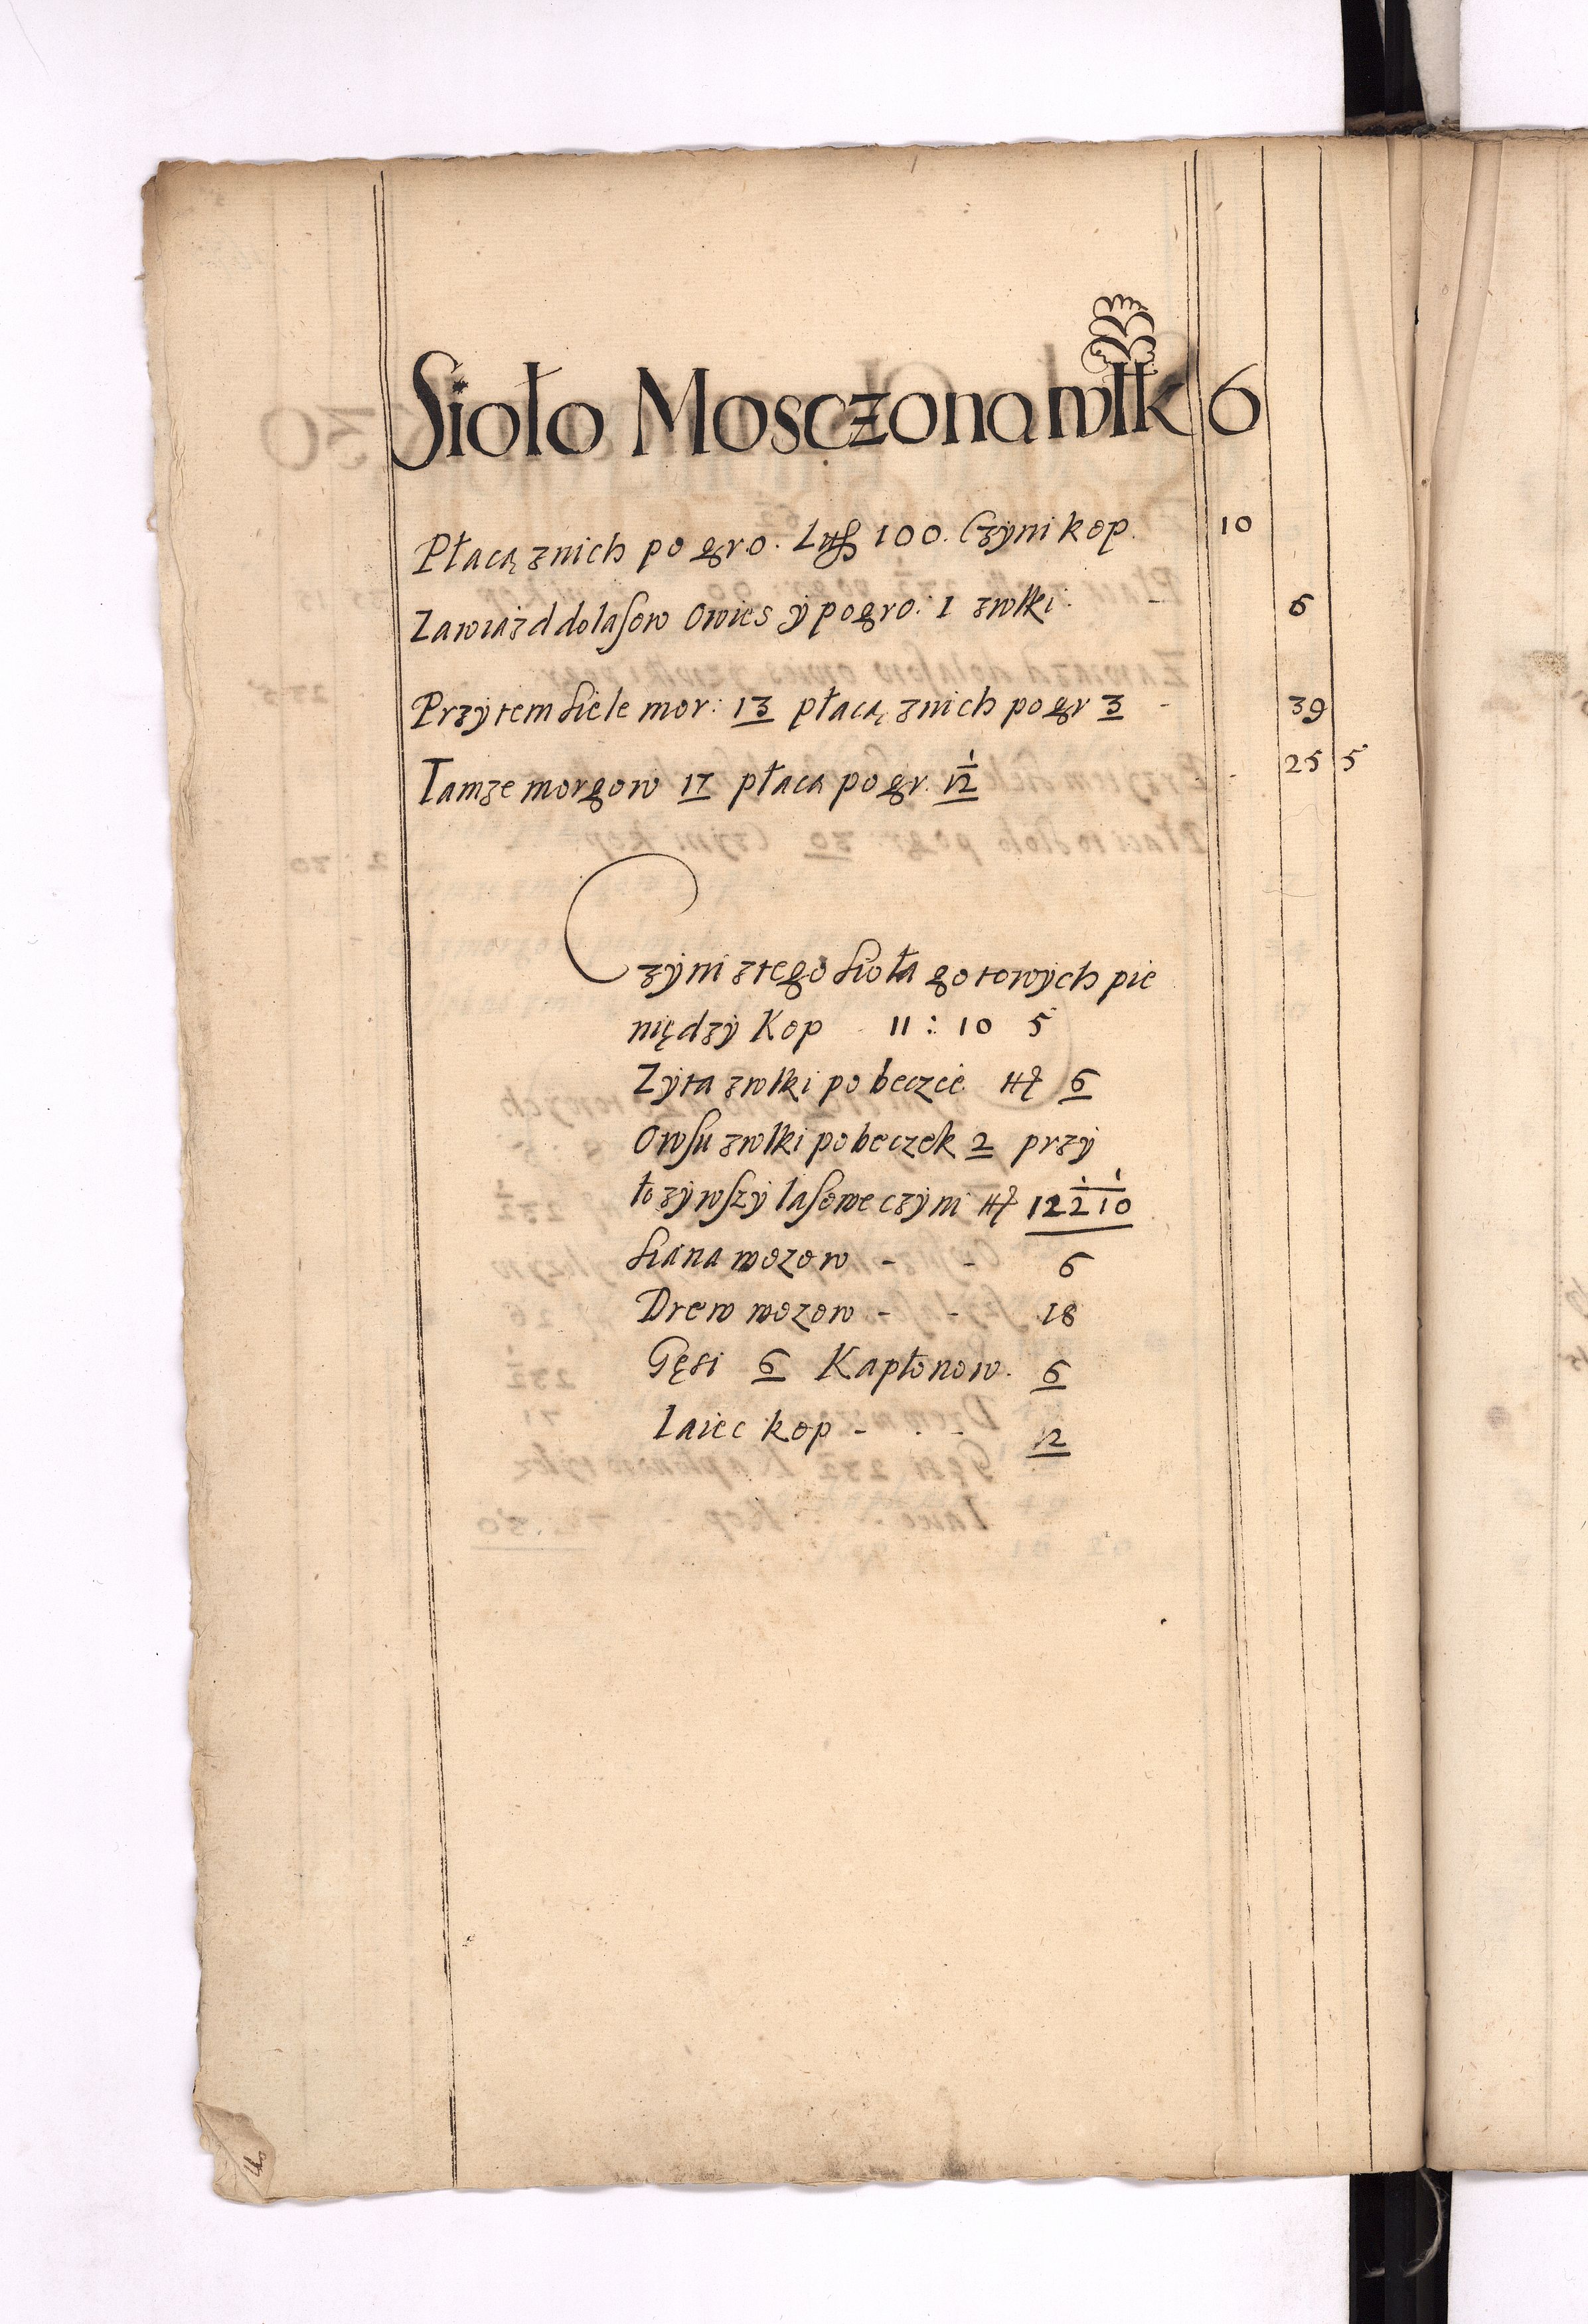 Sioło Mosczona włk 6
Płacą z nich po gro. Lit 100. Czyni kop. 10
Za wiazd do lasow Owies y po gro: 1 z włki. - 6
Przy tem siele mor: 13 płacą z nich po gr 3 - 39
Tamze morgow 17 płaca po gr. 1½ - 25 5
Czyni z tego sioła gotowych pie
niędzy Kop 11 : 10 5
Zyta z włki po beczce 6
Owsu z włki po beczek 2 przy
łozywszy lasowe czyni 12
siana wozow - - 6
Drew wozow - - 18
Gęsi 6 Kapłonow. 6
Iaiec kop - - ½